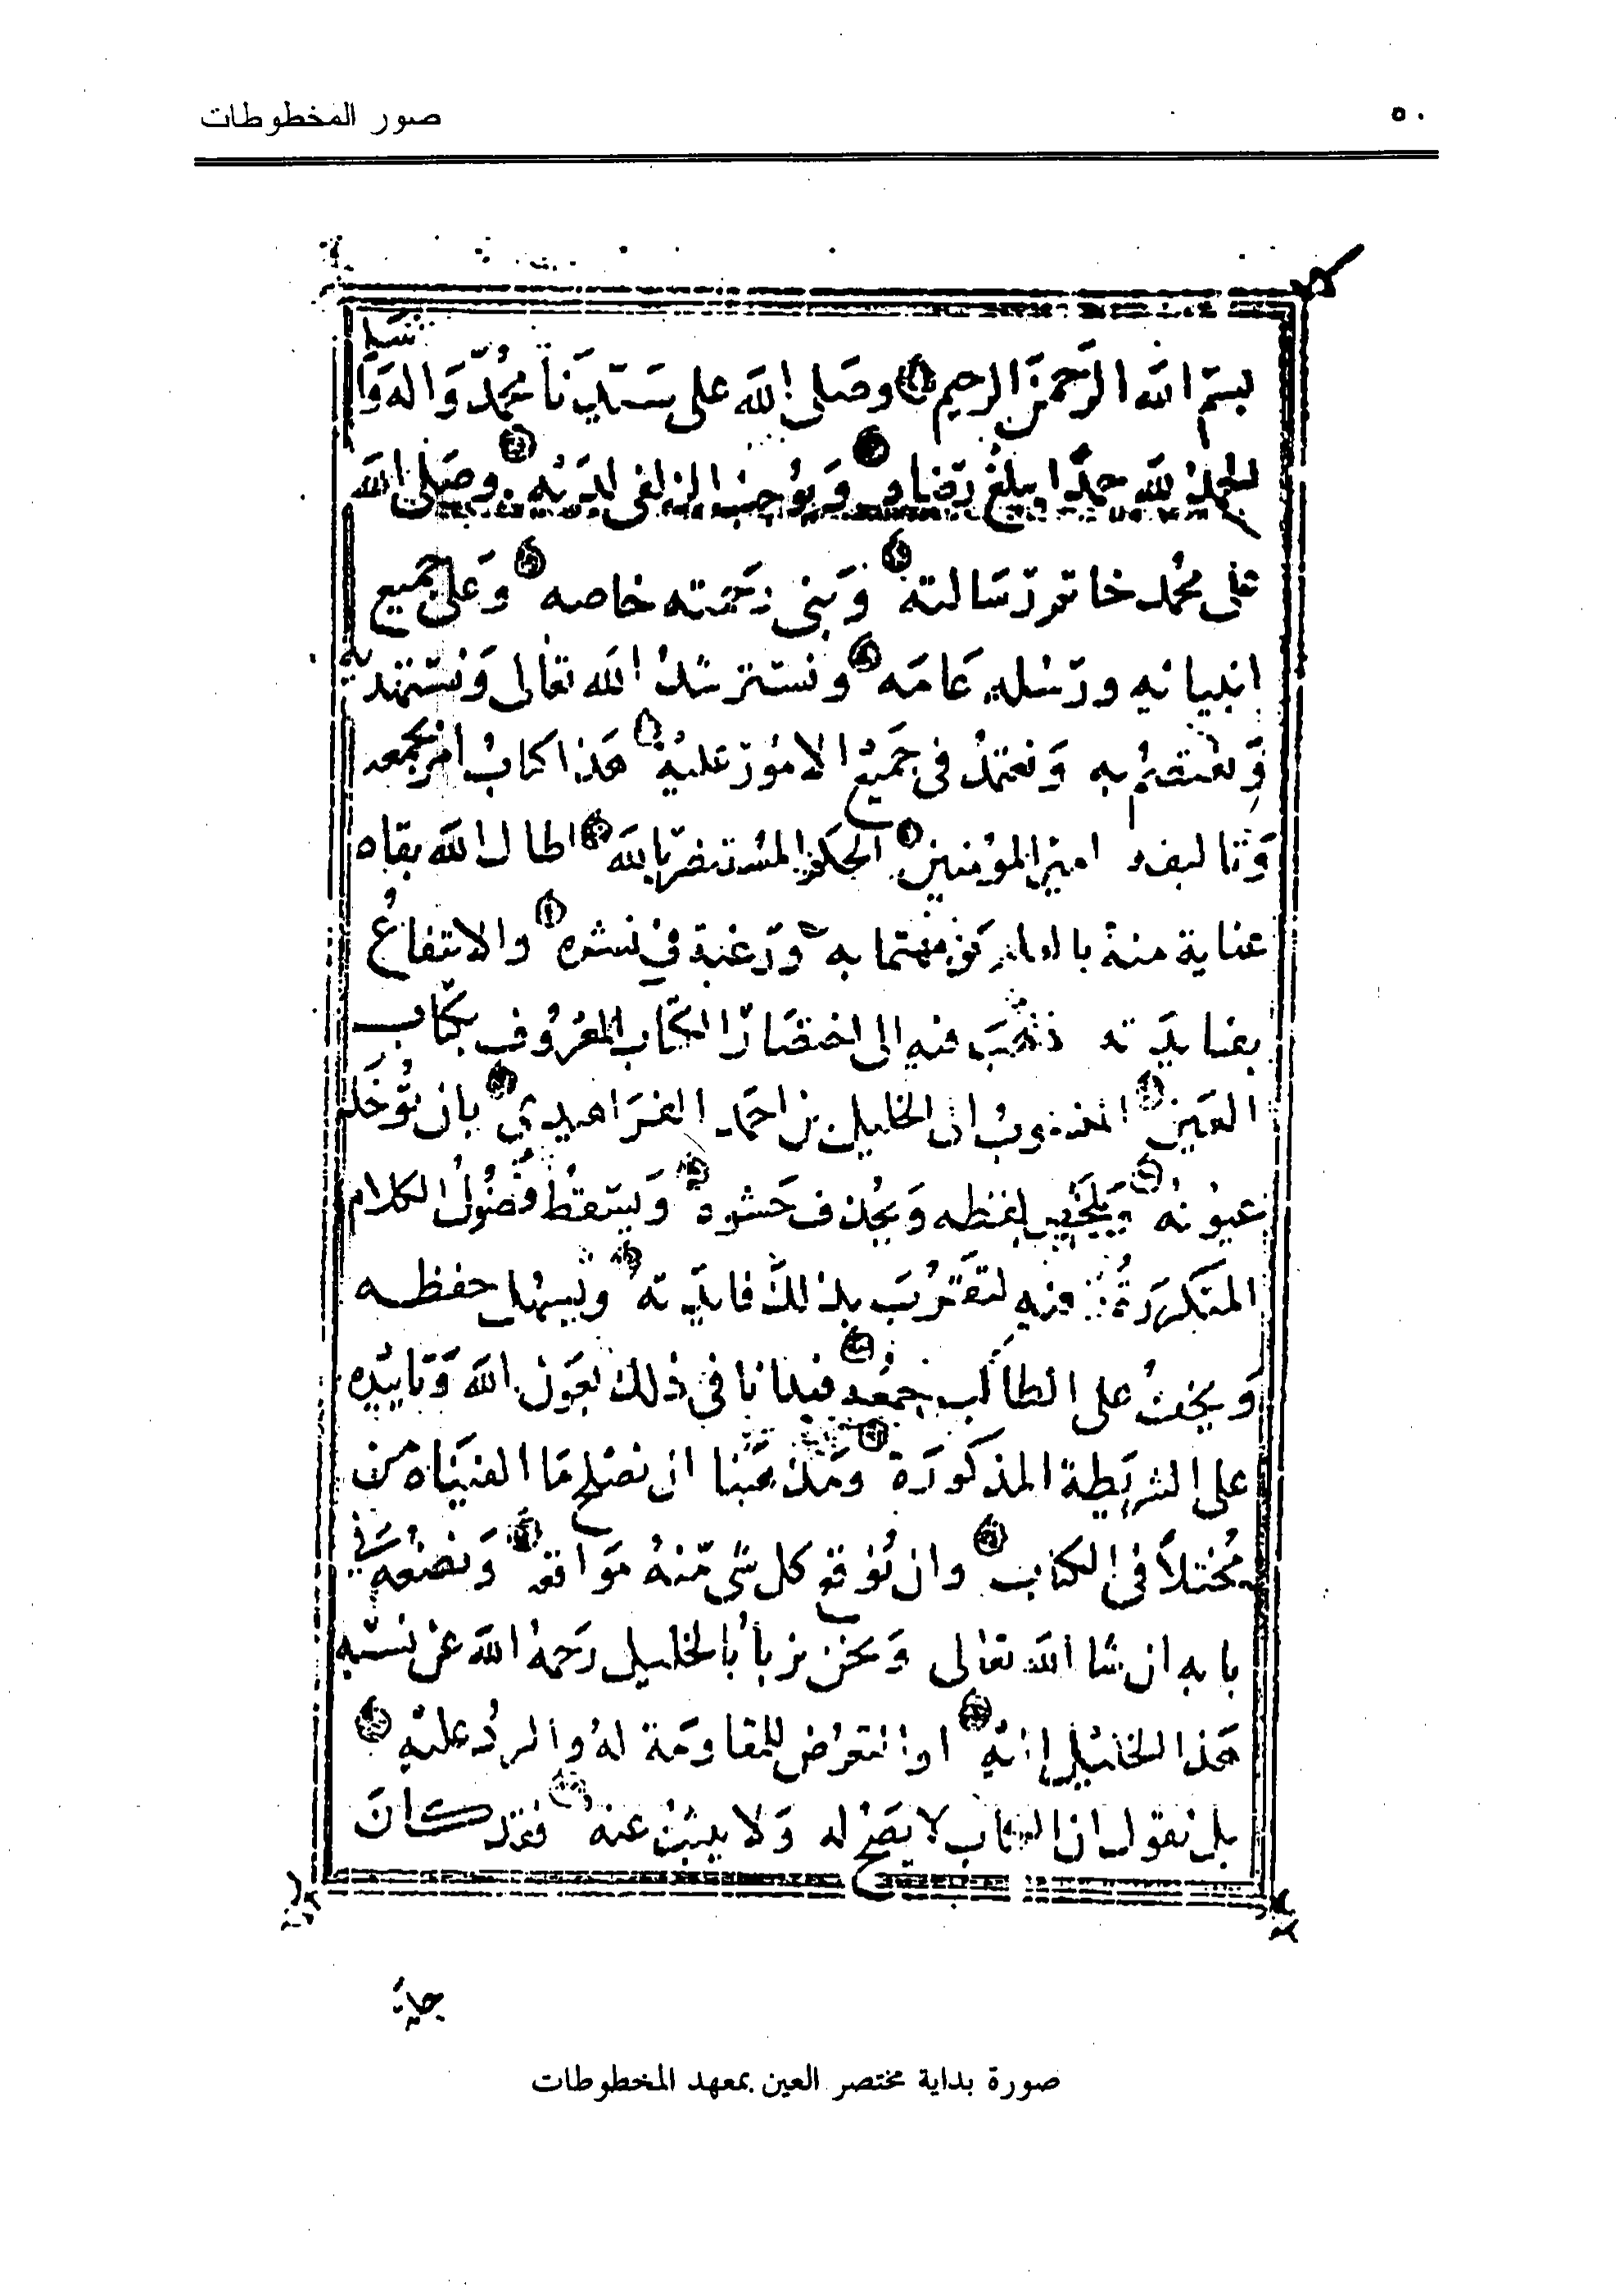 ٥٠
صور المخطوطات
بسم الله الرحمن الرحيم وصلى الله على سيدنا محمد واله و
الحمد لله حمدا يبلغ رضاه ويوجب الزلفى لديه وصلى الله
على محمد خاتم رسالته ونبي رحمته خاصه وعلى جميع
انبيائه ورسله عامه ونسترشد الله تعالى ونستهديه
ونعتصم به ونعتمد في جميع الامور عليه هذا كتاب امر بجمعه
وتاليفه امير المومنين الحكم المستنصر بالله اطال الله بقاه
عناية منه بالعلم به ورغبة في نشره والانتفاع
بفايدته ذهب فيه الى اختصار الكتاب المعروف بكتاب
العين المنسوب الى الخليل بن احمد الفراهيدي بان توخذ
عيونه ويلخص لفظه ويحذف حشوه ويسقط فضول الكلام
المتكررة فيه لتقرب بذلك فايدته ويسهل حفظه
ويخف على الطالب جمعه في ذلك بعون الله وتاييده
على الشريطة المذكورة ومذهبنا ان نصلح ما الفيناه من
مختلا في الكتاب وان نوقع كل شي منه مواقعه ونضعه في
بابه ان شا الله تعالى ونحن نربا بالخليل رحمه الله عن نسبه
هذا الخلل اليه او التعرض للمقاومة له والرد عليه
بل نقول ان الكتاب لا يصح له ولا يثبت عنه فقد كان
صورة بداية مختصر العين بمعهد المخطوطات